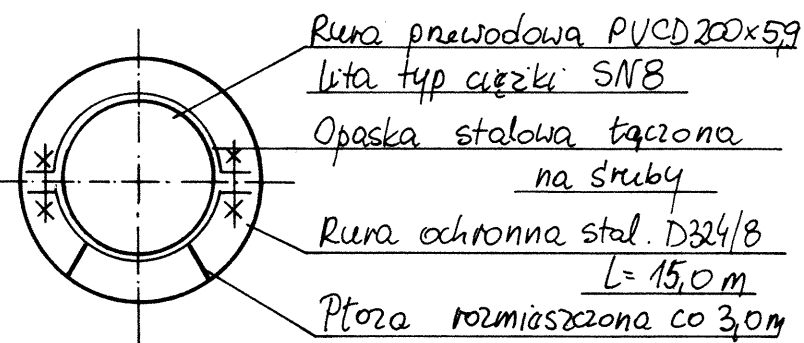 Rura przewodowa PVCD200x5,9
Lita typ ciężki SN8
Opaska stalowa łączona
na śruby
Rura ochronna stal. D324/8
L= 15,0 m
Płoza rozmieszczona co 3,0m